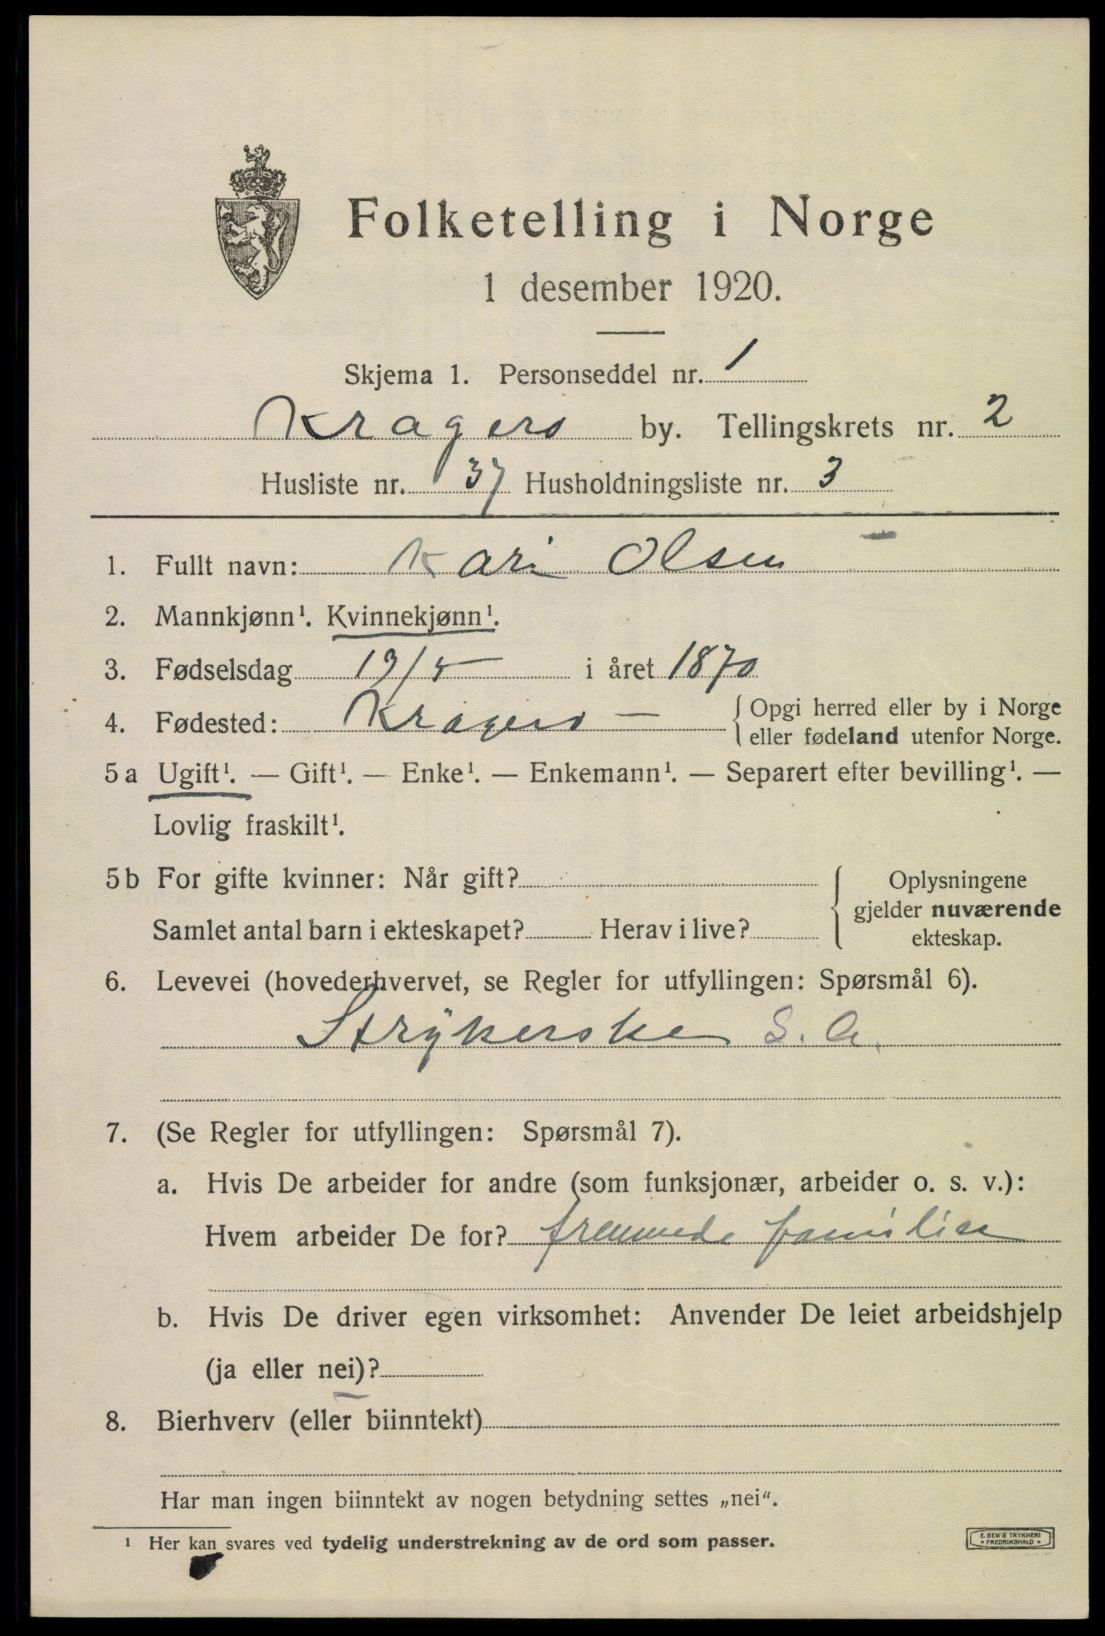 Folketelling i Norge
1 desember 1920.
Skjema 1. Personseddel nr. 1
Kragerø by. Tellingskrets nr. 2
Husliste nr. 37 Husholdningsliste nr. 3
1. Fullt navn: Kari Olsen
2. Mannkjønn¹. Kvinnekjønn¹.
3. Fødselsdag 19/5 i året 1870
4. Fødested: Kragerø — { Opgi herred eller by i Norge
eller fødeland utenfor Norge.
5a Ugift¹. — Gift¹. — Enke¹. — Enkemann¹. — Separert efter bevilling¹. —
Lovlig fraskilt¹.
5b For gifte kvinner: Når gift?
Samlet antal barn i ekteskapet? Herav i live?
Oplysningene
gjelder nuværende
ekteskap.
6. Levevei (hovederhvervet, se Regler for utfyllingen: Spørsmål 6).
Strykerske S. A.
7. (Se Regler for utfyllingen: Spørsmål 7).
a. Hvis De arbeider for andre (som funksjonær, arbeider o. s. v.):
Hvem arbeider De for? fremmede familier
b. Hvis De driver egen virksomhet: Anvender De leiet arbeidshjelp
(ja eller nei)?
8. Bierhverv (eller biinntekt)
Har man ingen biinntekt av nogen betydning settes „nei“.
¹ Her kan svares ved tydelig understrekning av de ord som passer.
E. SEM'S TRYKKERI
* FREDRIKSHALD *